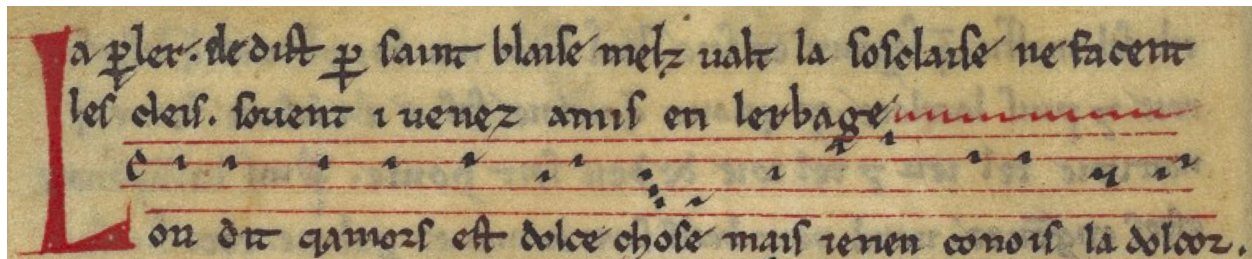 a p̱ler. de dist p̱ saint blaise melz ualt la sosclaise ne facent
les cleis. souent i uenez amis en lerbage
Lon dit qamors est dolce chose mais ienen conois la dolcor.